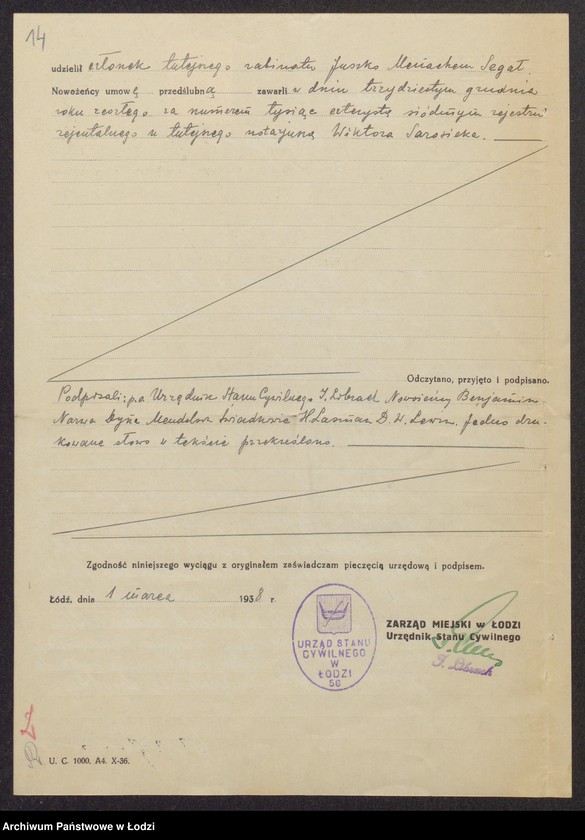 14
udzielił członek tutejszego rabinatu Juszko Menachem Segał.
Nowożeńcy umowę przedślubną zawarli w dniu trzydziestym grudnia
roku zeszłego za numerem tysiąc czterysta siódmym rejestru
rejentalnego u tutejszego notarjusza Wiktora Sarosieka.
Odczytano, przyjęto i podpisano.
Podpisali: p.o Urzędnik Stanu Cywilnego Nowożeńcy Benjamin
Świadkowie H. Lasman D. W. Lewin. Jedno dru-
kowane słowo w tekście przekreślono.
Zgodność niniejszego wyciągu z oryginałem zaświadczam pieczęcią urzędową i podpisem.
Łódź, dnia 1 marca 1938 r.
URZĄD STANU
CYWILNEGO
W
ŁODZI
56
ZARZĄD MIEJSKI w ŁODZI
Urzędnik Stanu Cywilnego
U. C. 1000. A4. X-36.
Archiwum Państwowe w Łodzi